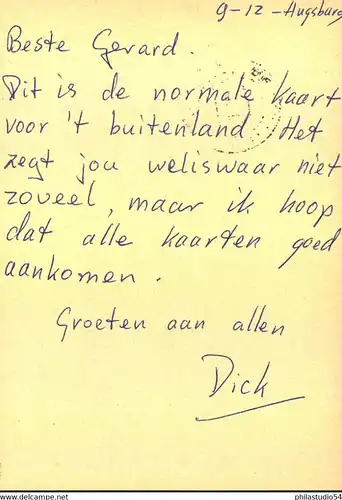 9-12 - Augsburg
Beste Gerard.
Dit is de normale kaart
voor 't buitenland. Het
zegt jou weliswaar niet
zoveel, maar ik hoop
dat alle kaarten goed
aankomen.
Groeten aan allen
Dick
Website: philastudio54